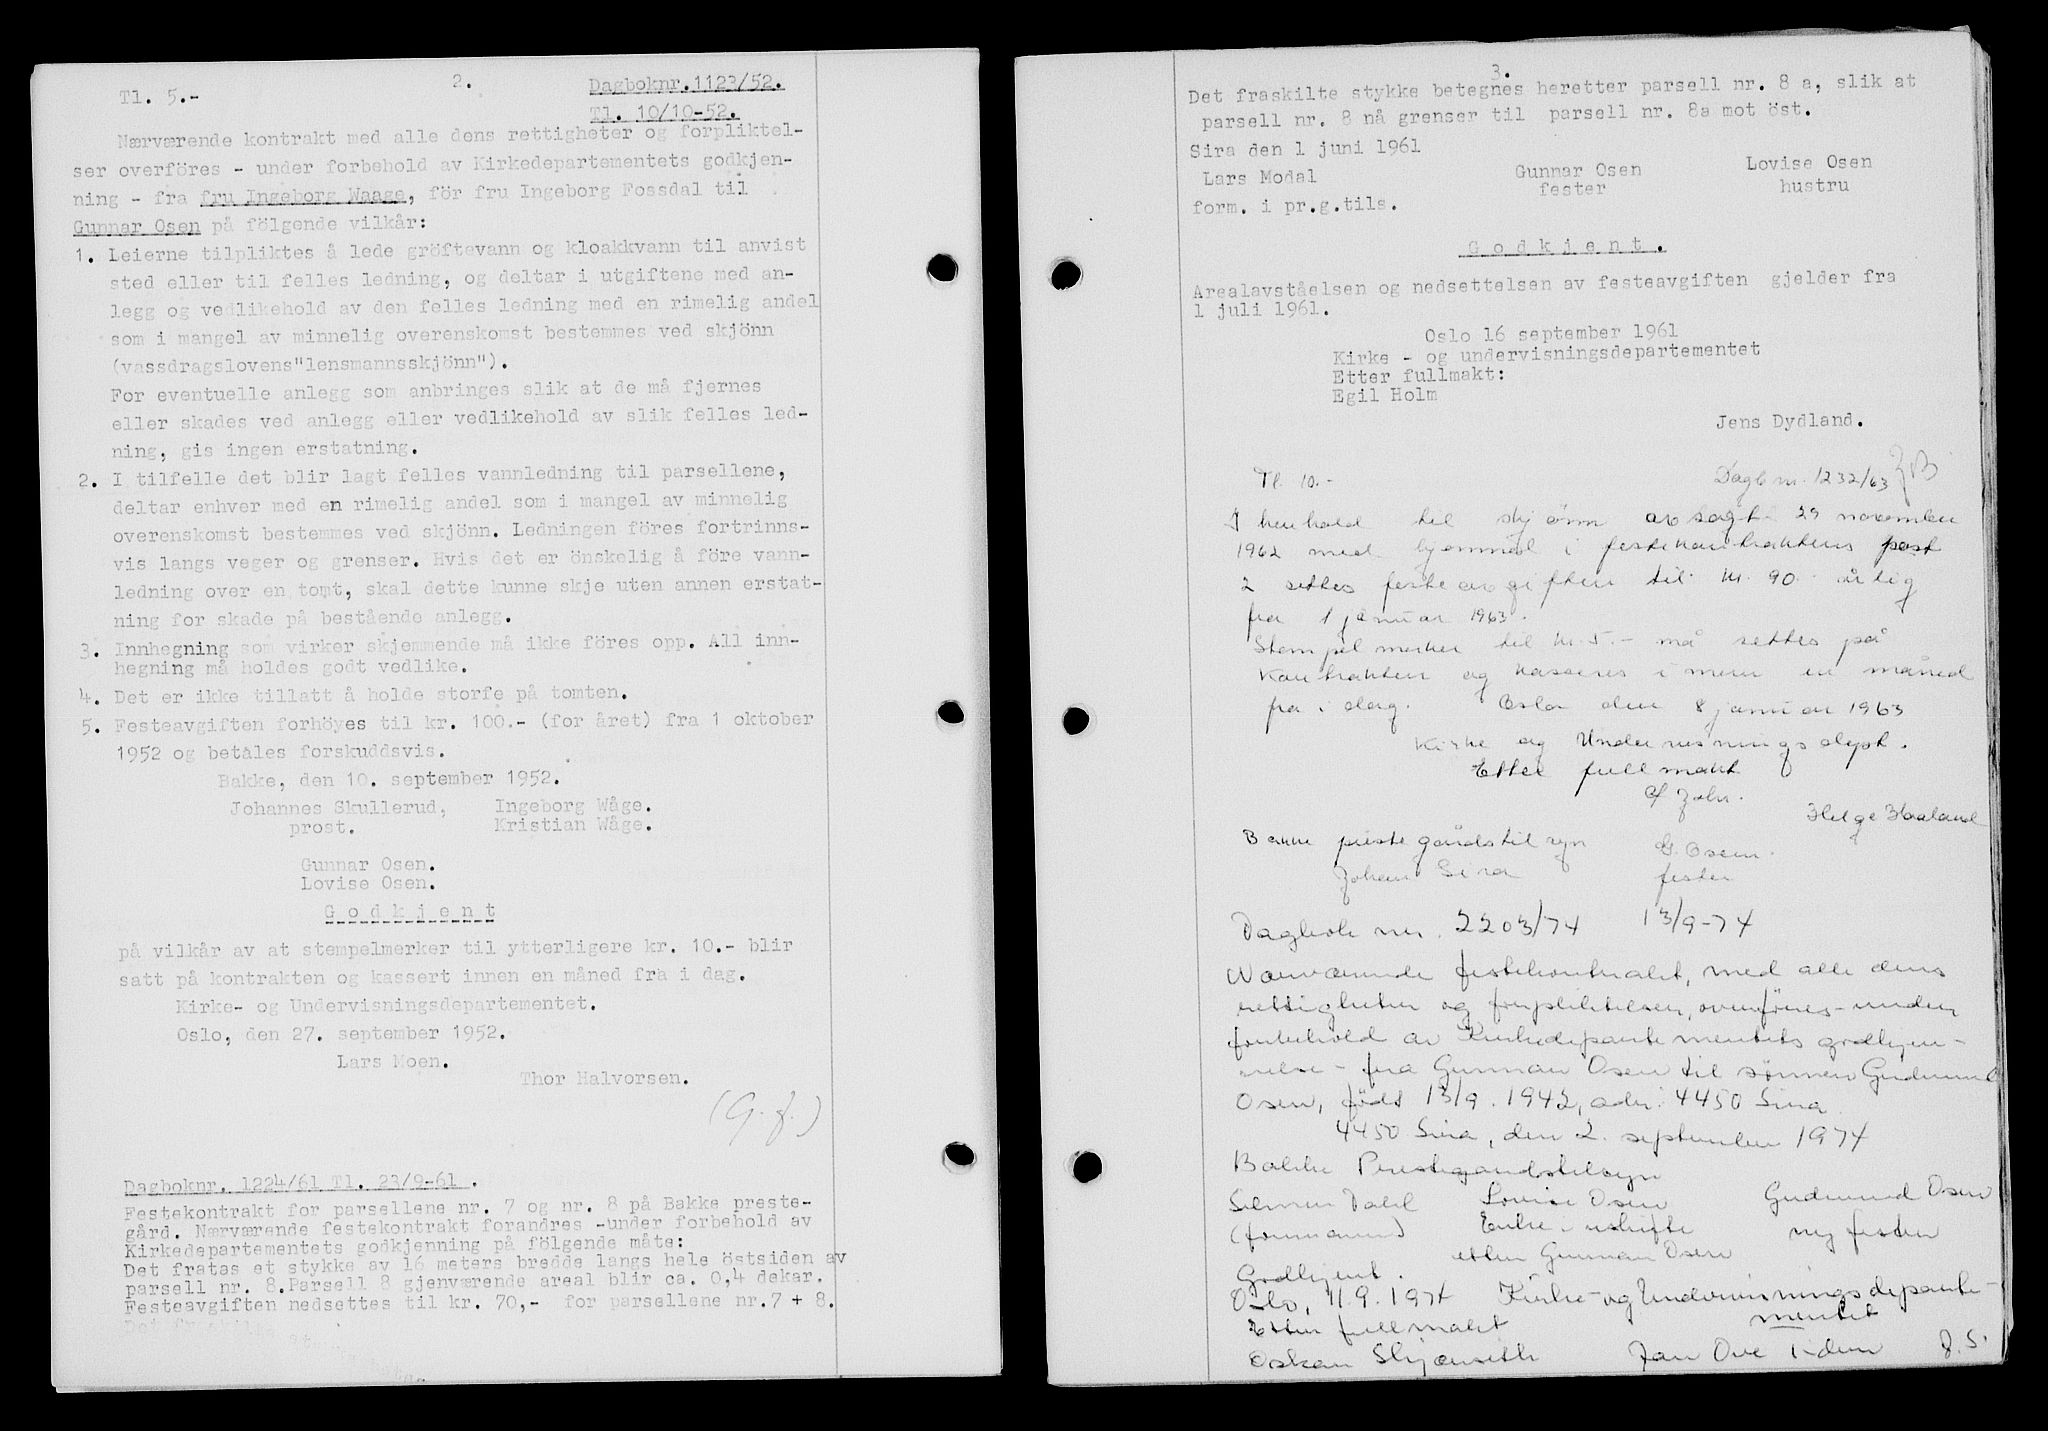 2.
Tl. 5.-
Dagboknr.1123/52.
Tl. 10/10-52.
Nærværende kontrakt med alle dens rettigheter og forpliktel-
ser overföres - under forbehold av Kirkedepartementets godkjen-
ning - fra fru Ingeborg Waage, för fru Ingeborg Fossdal til
Gunnar Osen på fölgende vilkår:
1. Leierne tilpliktes å lede gröftevann og kloakkvann til anvist
sted eller til felles ledning, og deltar i utgiftene med an-
legg og vedlikehold av den felles ledning med en rimelig andel
som i mangel av minnelig overenskomst bestemmes ved skjönn
(vassdragslovens"lensmannsskjönn").
For eventuelle anlegg som anbringes slik at de må fjernes
eller skades ved anlegg eller vedlikehold av slik felles led-
ning, gis ingen erstatning.
2. I tilfelle det blir lagt felles vannledning til parsellene,
deltar enhver med en rimelig andel som i mangel av minnelig
overenskomst bestemmes ved skjönn. Ledningen föres fortrinns-
vis langs veger og grenser. Hvis det er önskelig å före vann-
ledning over en tomt, skal dette kunne skje uten annen erstat-
ning for skade på bestående anlegg.
3. Innhegning som virker skjemmende må ikke föres opp. All inn-
hegning må holdes godt vedlike.
4. Det er ikke tillatt å holde storfe på tomten.
5. Festeavgiften forhöyes til kr. 100.- (for året) fra 1 oktober
1952 og betales forskuddsvis.
Bakke, den 10. september 1952.
Johannes Skullerud, Ingeborg Wåge.
prost. Kristian Wåge.
Gunnar Osen.
Lovise Osen.
Godkjent
på vilkår av at stempelmerker til ytterligere kr. 10.- blir
satt på kontrakten og kassert innen en måned fra i dag.
Kirke- og Undervisningsdepartementet.
Oslo, den 27. september 1952.
Lars Moen.
Thor Halvorsen.
(G.f.)
Dagboknr. 1224/61 Tl. 23/9-61 .
Festekontrakt for parsellene nr. 7 og nr. 8 på Bakke preste-
gård. Nærværende festekontrakt forandres -under forbehold av
Kirkedepartementets godkjenning på fölgende måte:
Det fratas et stykke av 16 meters bredde langs hele östsiden av
parsell nr. 8.Parsell 8 gjenværende areal blir ca. 0,4 dekar.
Festeavgiften nedsettes til kr. 70,- for parsellene nr.7 + 8.
Det fraskilte
3.
Det fraskilte stykke betegnes heretter parsell nr. 8 a, slik at
parsell nr. 8 nå grenser til parsell nr. 8a mot öst.
Sira den 1 juni 1961
Lars Modal Gunnar Osen Lovise Osen
form. i pr.g.tils. fester hustru
Godkjent.
Arealavståelsen og nedsettelsen av festeavgiften gjelder fra
1 juli 1961.
Oslo 16 september 1961
Kirke - og undervisningsdepartementet
Etter fullmakt:
Egil Holm
Jens Dydland.
Tl. 10.- Dagb nr. 1232/63
I henhold til skjönn avsagt 29 november
1962 med hjemmel i festekontraktens post
2 settes festeavgiften til kr. 90.- årlig
fra 1 januar 1963.
Stempelmerker til kr. 5.- må settes på
kontrakten og kasseres innen en måned
fra i dag. Oslo den 8 januar 1963
Kirke og Undervisningsdept.
Etter fullmakt
Helge Haaland
Bakke prestegårdstilsyn G. Osen.
Johan Sira fester
Dagbok nr. 2203/74 13/9-74
Nærværende festekontrakt, med alle dens
rettigheter og forpliktelser, overföres - under
forbehold av Kirkedepartementets godkjen-
nelse - fra Gunnar Osen til sønnen Gudmund
Osen, født 13/9. 1942, adr: 4450 Sira.
4450 Sira, den 2. september 1974
Bakke Prestegardstilsyn
Selmer Dahl Lovise Osen Gudmund Osen
(formann) Enke i uskifte ny fester
etter Gunnar Osen
Godkjent.
Oslo, 11.9.1974 Kirke- og Undervisningsdeparte-
Etter fullmakt mentet
Oskar Skjænseth Jan Ove Tiden J. S.